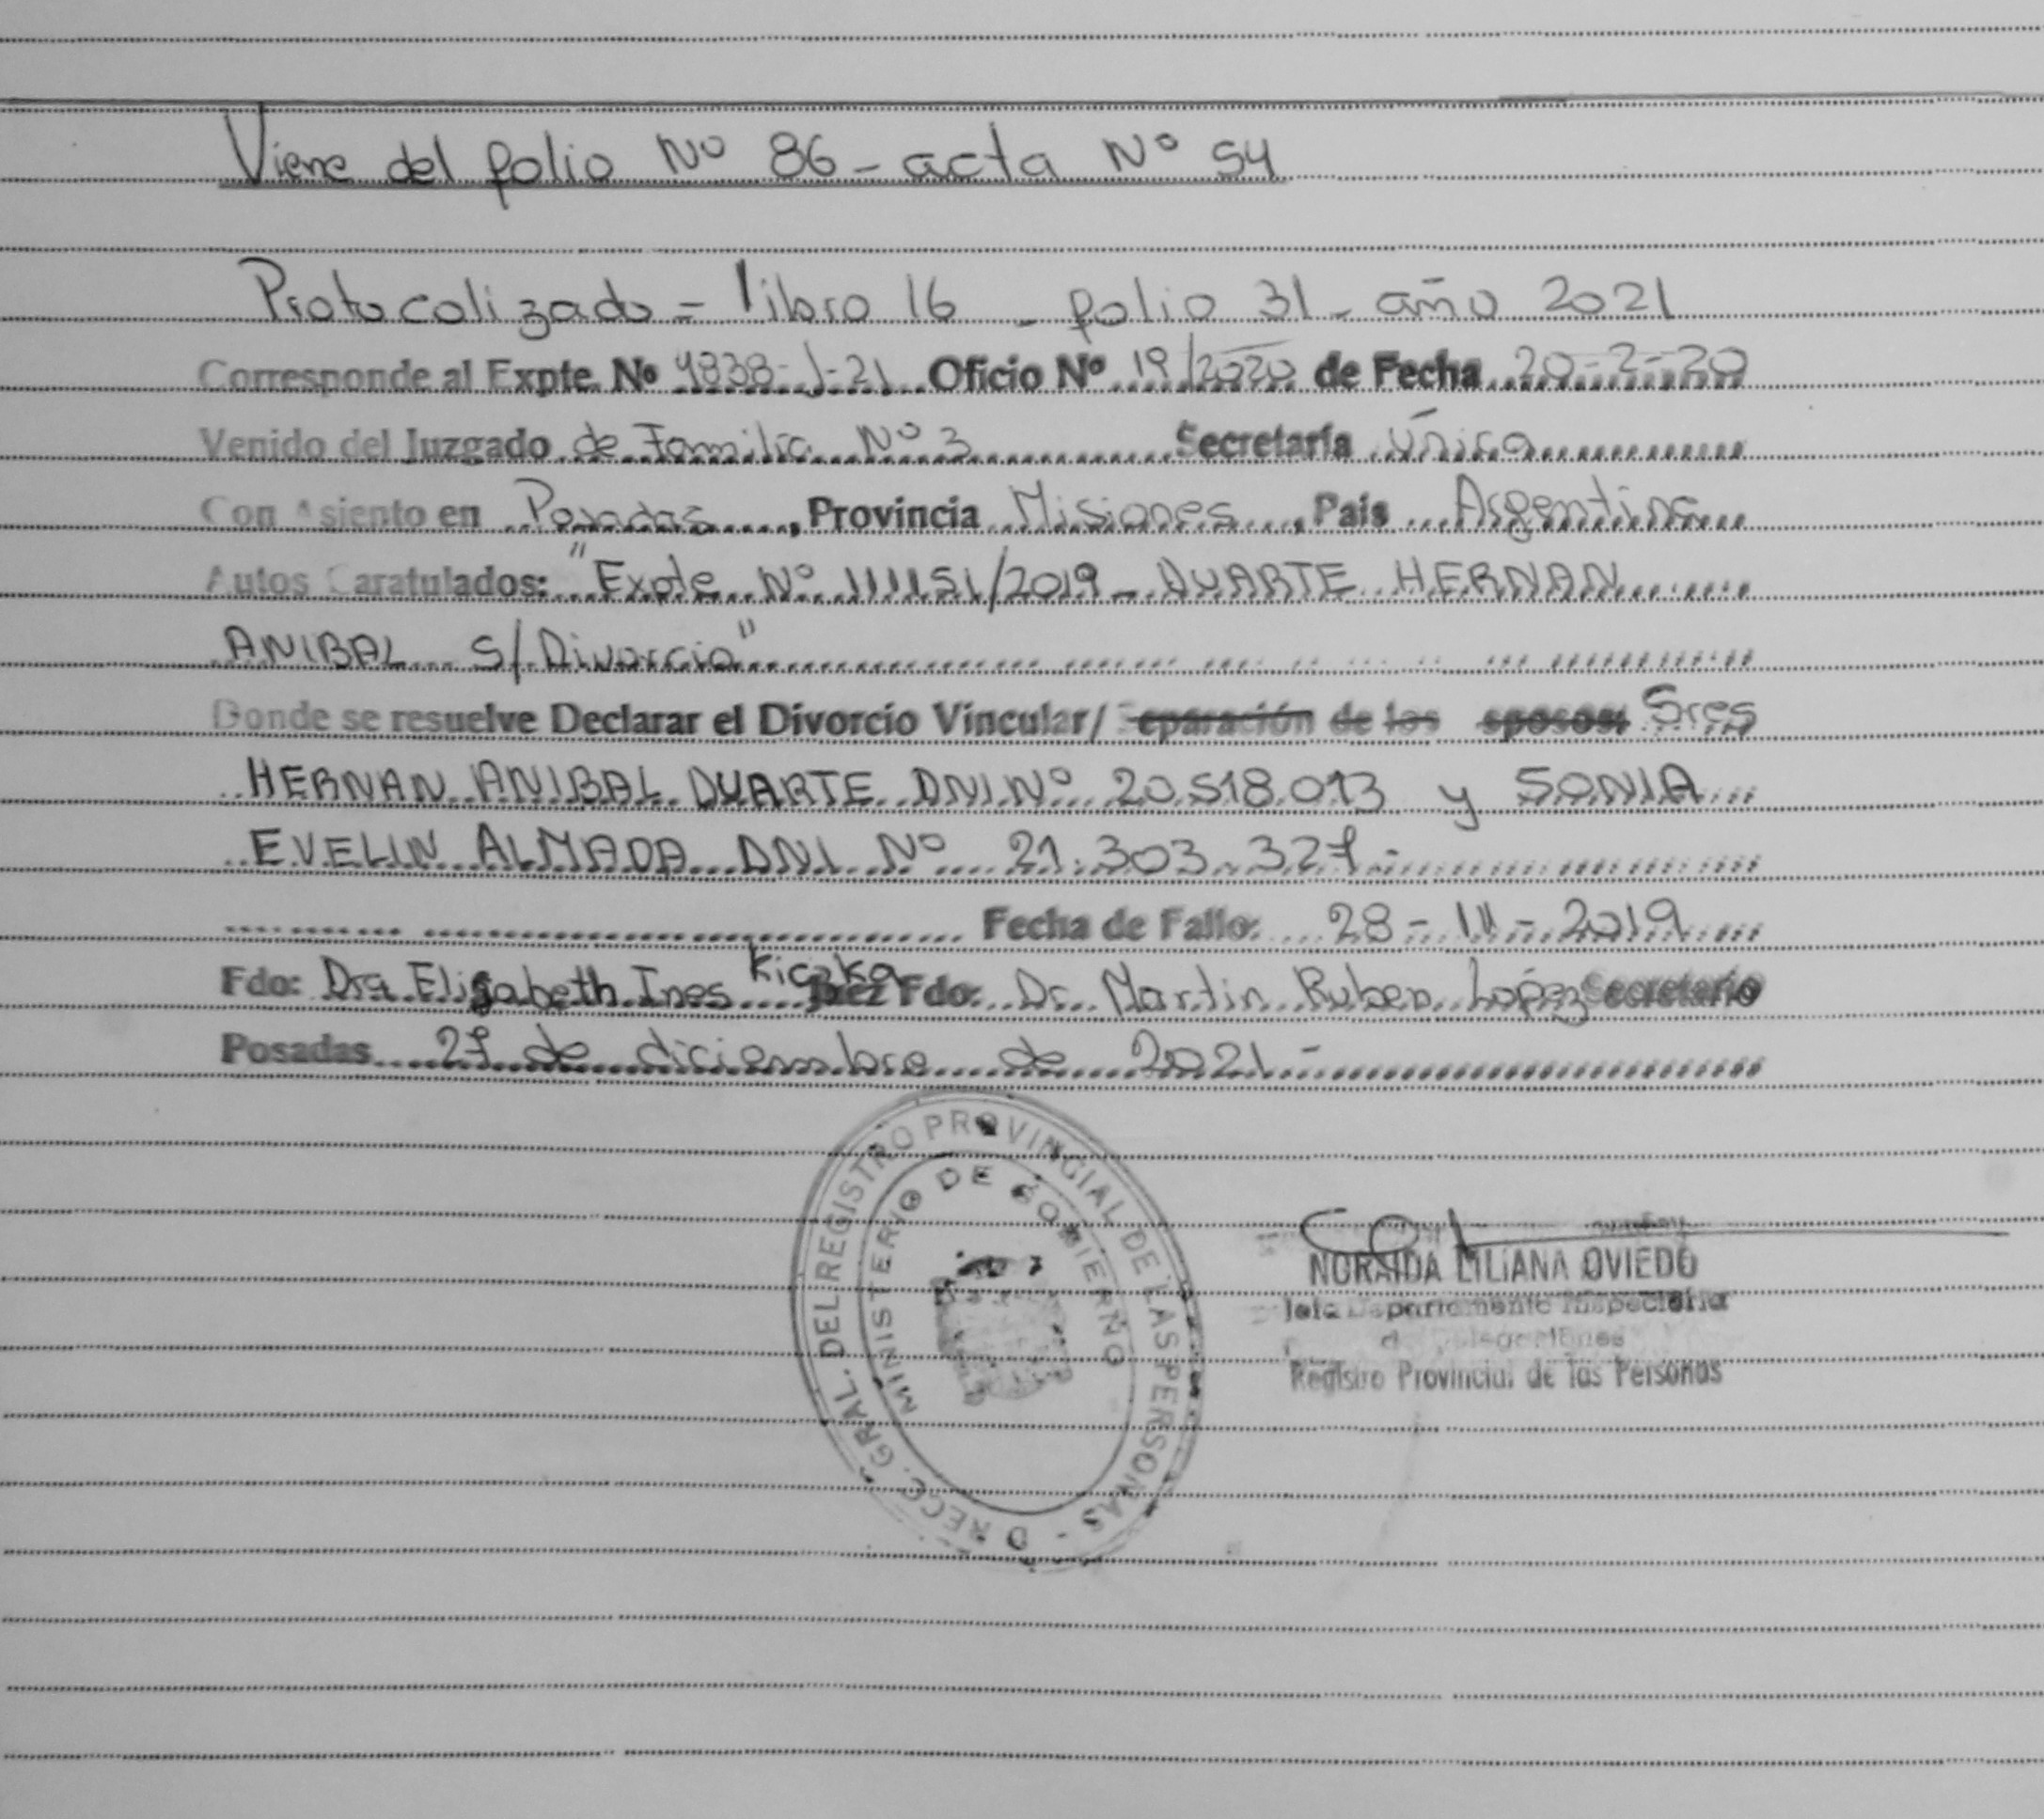 Viene del folio Nº 86 - acta Nº 54
Protocolizado = libro 16 - folio 31 - año 2021
Corresponde al Expte. Nº 9838-J-21 Oficio Nº 19/2020 de Fecha 20-2-20
Venido del Juzgado de Familia Nº 3 Secretaría Única
Con Asiento en Posadas, Provincia Misiones, Pais Argentina
Autos Caratulados: "Expte Nº 111151/2019 - DUARTE HERNAN
ANIBAL S/Divorcio"
Donde se resuelve Declarar el Divorcio Vincular/ Separación de los esposos: Sres
HERNAN ANIBAL DUARTE DNI Nº 20.518.013 y SONIA
EVELIN ALMADA DNI Nº 21.303.327.-
Fecha de Fallo: 28-11-2019
Fdo: Dra Elisabeth Ines Kiczka Juez Fdo: Dr. Martin Ruben López Secretario
Posadas 27 de diciembre de 2021.-
DIRECC. GRAL. DEL REGISTRO PROVINCIAL DE LAS PERSONAS -
MINISTERIO DE GOBIERNO
NORAIDA LILIANA OVIEDO
Jefa Departamento Inspectoria
Registro Provincial de las Personas